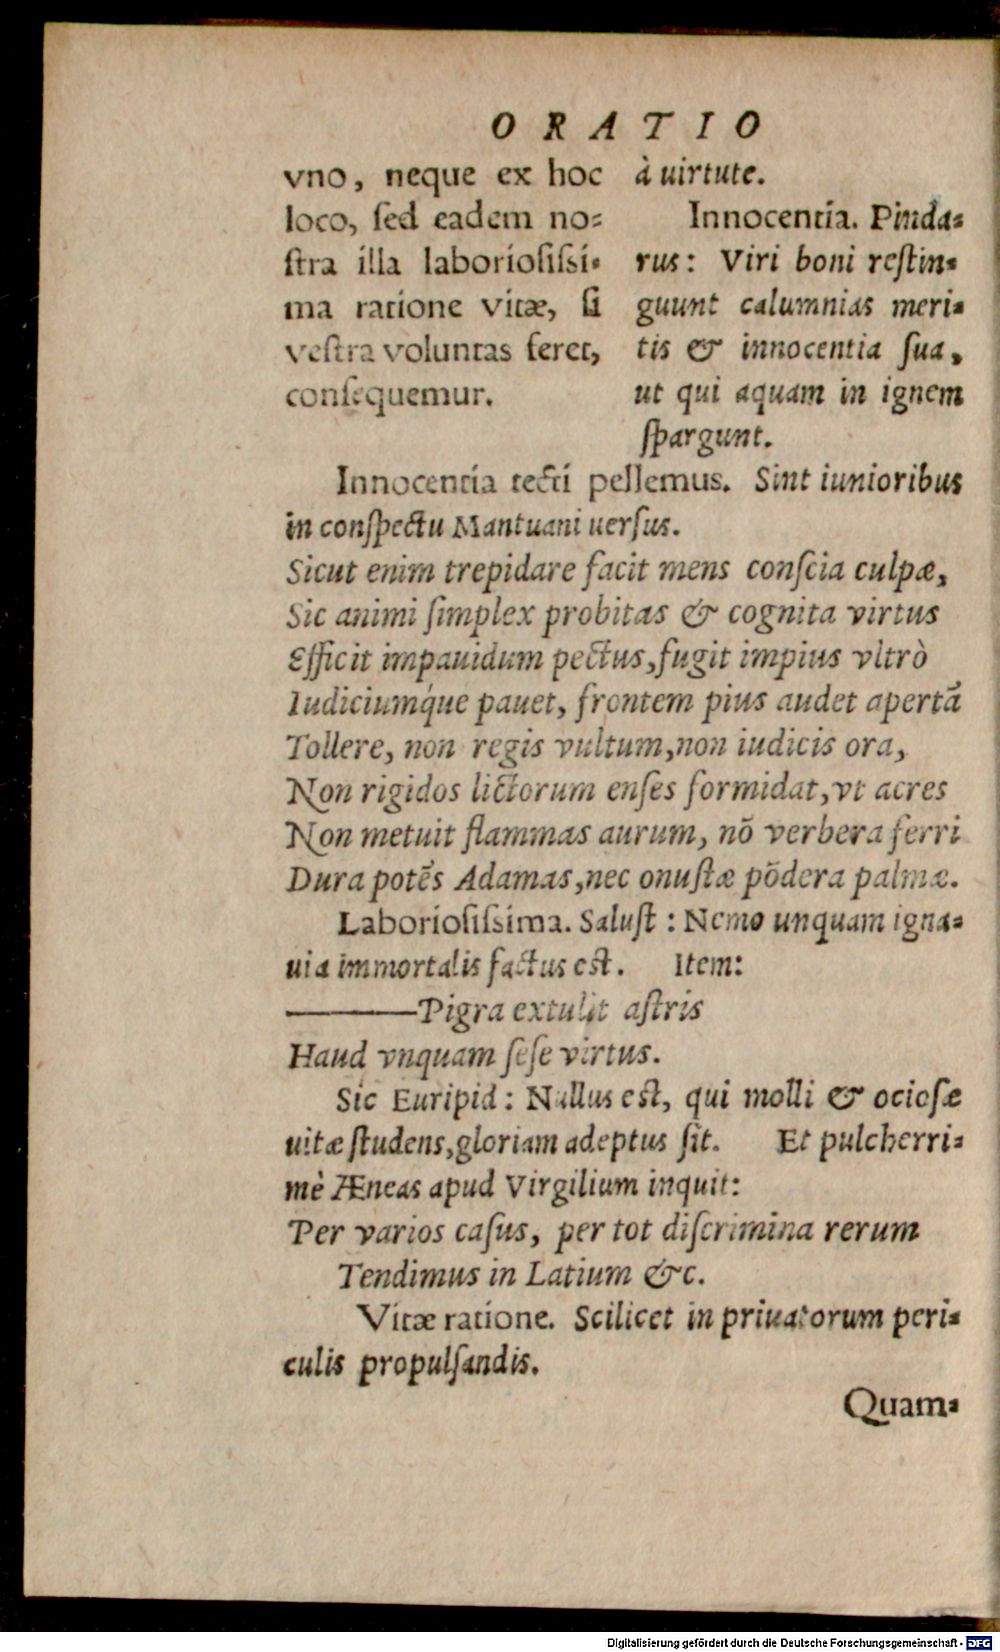 ORATIO
vno, neque ex hoc
loco, ſed eadem no-
ſtra illa laborioſiſsi-
ma ratione vitæ, ſi
veſtra voluntas feret,
conſequemur.
à uirtute.
Innocentia. Pinda-
rus: Viri boni reſtin-
guunt calumnias meri-
tis & innocentia ſua,
ut qui aquam in ignem
ſpargunt.
Innocentia tecti pellemus. Sint iunioribus
in conſpectu Mantuani uerſus.
Sicut enim trepidare facit mens conſcia culpæ,
Sic animi ſimplex probitas & cognita virtus
Efficit impauidum pectus, fugit impius vltrò
Iudiciumq́ue pauet, frontem pius audet apertā
Tollere, non regis vultum, non iudicis ora,
Non rigidos lictorum enſes formidat, vt acres
Non metuit flammas aurum, nō verbera ferri
Dura potēs Adamas, nec onuſtæ pōdera palmæ.
Laborioſiſsima. Saluſt: Nemo unquam igna-
uia immortalis factus eſt. Item:
———Pigra extulit aſtris
Haud vnquam ſeſe virtus.
Sic Euripid: Nullus eſt, qui molli & ocioſæ
uitæ ſtudens, gloriam adeptus ſit. Et pulcherri-
mè Æneas apud Virgilium inquit:
Per varios caſus, per tot diſcrimina rerum
Tendimus in Latium &c.
Vitæ ratione. Scilicet in priuatorum peri-
culis propulſandis.
Quam-
Digitalisierung gefördert durch die Deutsche Forschungsgemeinschaft - DFG